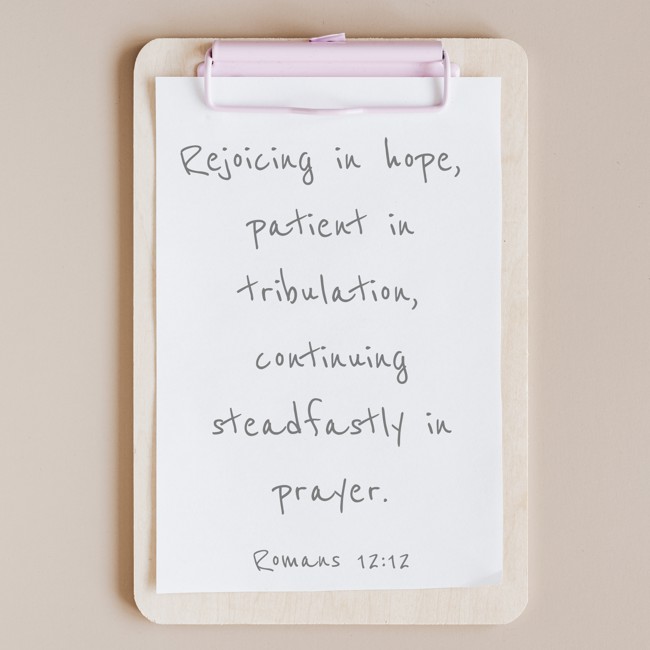 Rejoicing in hope,
patient in
tribulation,
continuing
steadfastly in
prayer.
Romans 12:12